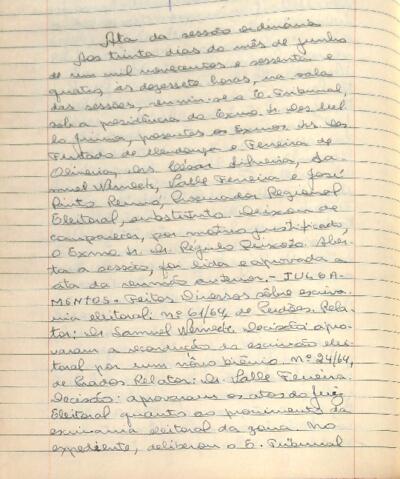 Ata da sessão ordinária
Aos trinta dias do mês de junho
de um mil novecentos e sessenta e
quatro, às dezessete horas, na sala
das sessões, reuniu-se o E. Tribunal,
sob a presidência do Exmo. Sr. Des.
presentes os Exmos. Srs. Des.
Furtado de Mendonça e Ferreira de
Oliveira, Drs. César Silveira, Sa-
muel Werneck, Valle Ferreira e José
Pinto Renno, Procurador Regional
Eleitoral, substituto. Deixou de
comparecer, por motivo justificado,
o Exmo. Sr. Dr. Régulo Peixoto. Aber-
ta a sessão, foi lida e aprovada a
ata da reunião anterior. - JULGA-
MENTOS - Feitos Diversos sôbre escriva-
nia eleitoral: nº 61/64, de Perdões. Rela-
tor: Dr. Samuel Werneck. Decisão: apro-
varam a recondução da escrivão elei-
toral por um nôvo biênio. Nº 24/64,
de Prados. Relator: Dr. Valle Ferreira.
Decisão: aprovaram os atos do Juiz
Eleitoral quanto ao provimento da
escrivania eleitoral da zona. No
expediente, deliberou o E. Tribunal